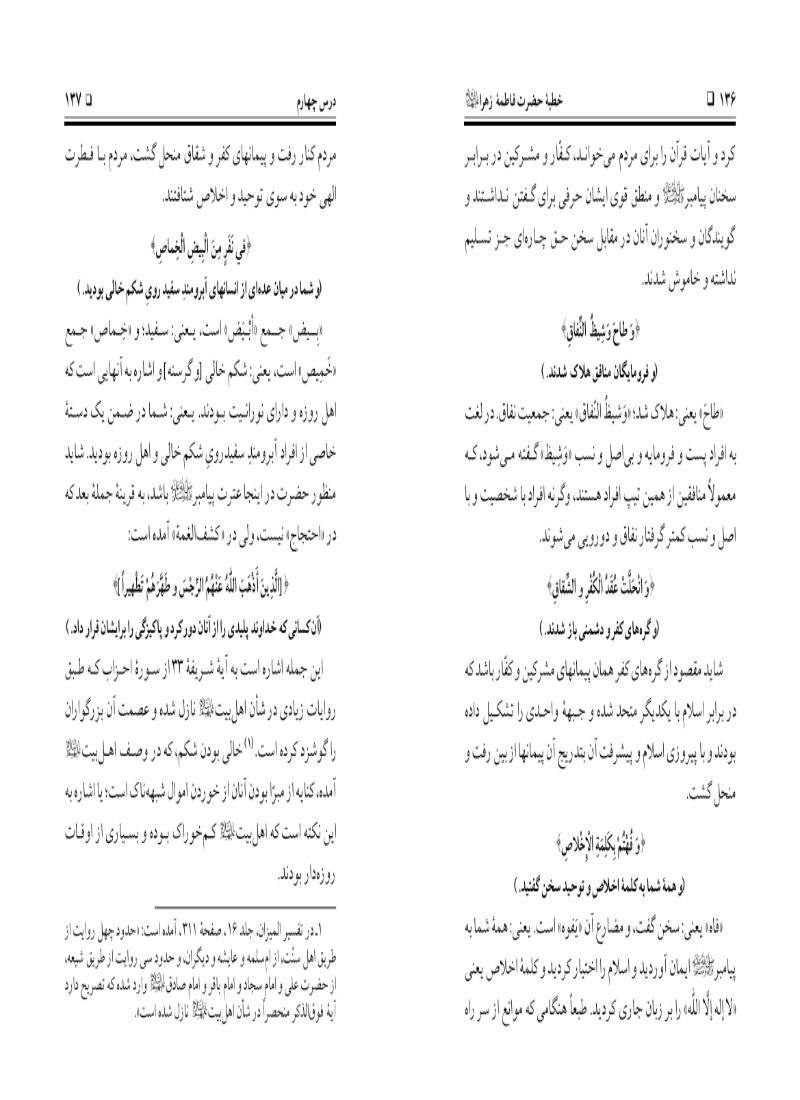 ۱۳۶ □ خطبهٔ حضرت فاطمهٔ زهرا
کرد و آیات قرآن را برای مردم می‌خواند، کـفّار و مشـرکین در بـرابـر
سخنان پیامبرﷺ و منطق قوی ایشان حرفی برای گـفتن نـداشـتند و
گویندگان و سخنوران آنان در مقابل سخن حـق چـاره‌ای جـز تسـلیم
نداشته و خاموش شدند.
﴿وَ طاحَ وَشِیظُ النِّفاقِ﴾
(و فرومایگان منافق هلاک شدند.)
«طاحَ» یعنی: هلاک شد؛ «وَشیظُ النّفاق» یعنی: جمعیت نفاق. در لغت
به افراد پست و فرومایه و بی‌اصل و نسب «وَشِیظ» گـفته مـی‌شود، کـه
معمولاً منافقین از همین تیپ افراد هستند، وگرنه افراد با شخصیت و با
اصل و نسب کمتر گرفتار نفاق و دورویی می‌شوند.
﴿وَ انْحَلَّتْ عُقَدُ الْکُفْرِ و الشِّقاقِ﴾
(و گره‌های کفر و دشمنی باز شدند.)
شاید مقصود از گره‌های کفر همان پیمانهای مشرکین و کفّار باشد که
در برابر اسلام با یکدیگر متحد شده و جـبههٔ واحـدی را تشکـیل داده
بودند و با پیروزی اسلام و پیشرفت آن بتدریج آن پیمانها از بین رفت و
منحل گشت.
﴿وَ فُهْتُمْ بِکَلِمَةِ الْإِخْلاصِ﴾
(و همهٔ شما به کلمهٔ اخلاص و توحید سخن گفتید.)
«فاه» یعنی: سخن گفت، و مضارع آن «یَفوه» است. یعنی: همهٔ شما به
پیامبرﷺ ایمان آوردید و اسلام را اختیار کردید و کلمهٔ اخلاص یعنی
«لا إله إلّا اللّه» را بر زبان جاری کردید. طبعاً هنگامی که موانع از سر راه
درس چهارم □ ۱۳۷
مردم کنار رفت و پیمانهای کفر و شقاق منحل گشت، مردم بـا فـطرت
الهی خود به سوی توحید و اخلاص شتافتند.
﴿في نَفَرٍ مِنَ الْبِیضِ الْخِماصِ﴾
(و شما در میان عده‌ای از انسانهای آبرومندِ سفید رویِ شکم خالی بودید.)
«بِـیض» جـمع «أبْـیَض» است، یـعنی: سـفید؛ و «خِـماص» جـمع
«خَمِیص» است، یعنی: شکم خالی [و گرسنه] و اشاره به آنهایی است که
اهل روزه و دارای نورانـیت بـودند. یـعنی: شـما در ضـمن یک دسـتهٔ
خاصی از افراد آبرومندِ سفیدرویِ شکم خالی و اهل روزه بودید. شاید
منظور حضرت در اینجا عترت پیامبرﷺ باشد، به قرینهٔ جملهٔ بعد که
در «احتجاج» نیست، ولی در «کشف‌الغمة» آمده است:
﴿[الَّذِینَ أَذْهَبَ اللّهُ عَنْهُمُ الرِّجْسَ وَ طَهَّرَهُمْ تَطْهیراً]﴾
(آن کسانی که خداوند پلیدی را از آنان دور کرد و پاکیزگی را برایشان قرار داد.)
این جمله اشاره است به آیهٔ شـریفهٔ ۳۳ از سـورهٔ احـزاب کـه طـبق
روایات زیادی در شأن اهل‌بیت نازل شده و عصمت آن بزرگواران
را گوشزد کرده است.(۱) خالی بودن شکم، که در وصـف اهـل‌بیت
آمده، کنایه از مبرّا بودن آنان از خوردن اموال شبهه‌ناک است؛ یا اشاره به
این نکته است که اهل‌بیت کـم‌خوراک بـوده و بسـیاری از اوقـات
روزه‌دار بودند.
۱ـ در تفسیر المیزان، جلد ۱۶، صفحهٔ ۳۱۱، آمده است: «حدود چهل روایت از
طریق اهل سنّت، از ام‌سلمه و عایشه و دیگران، و حدود سی روایت از طریق شیعه،
از حضرت علی و امام سجاد و امام باقر و امام صادق وارد شده که تصریح دارد
آیهٔ فوق‌الذکر منحصراً در شأن اهل‌بیت نازل شده است».